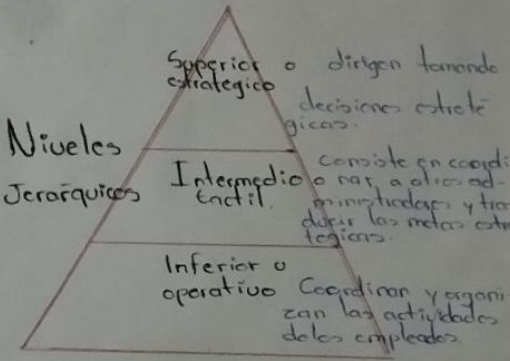 Niveles
Jerárquicos
Superior o
estratégico
dirigen tomando
decisiones estraté
gicas.
Intermedio o
táctil.
consiste en coordi
nar, a otros ad-
ministradores y tra
ducir las metas estra
tegicas.
Inferior o
operativo
Coordinan y organi
zan las actividades
de los empleados